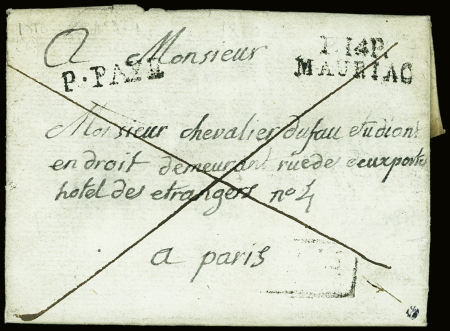 A Monsieur
P.PAYÉ
P.14.P.
MAURIAC
Monsieur chevalier dufau etudiant
en droit demeurant rue de deux porte
hotel des etrangers no 4
a paris